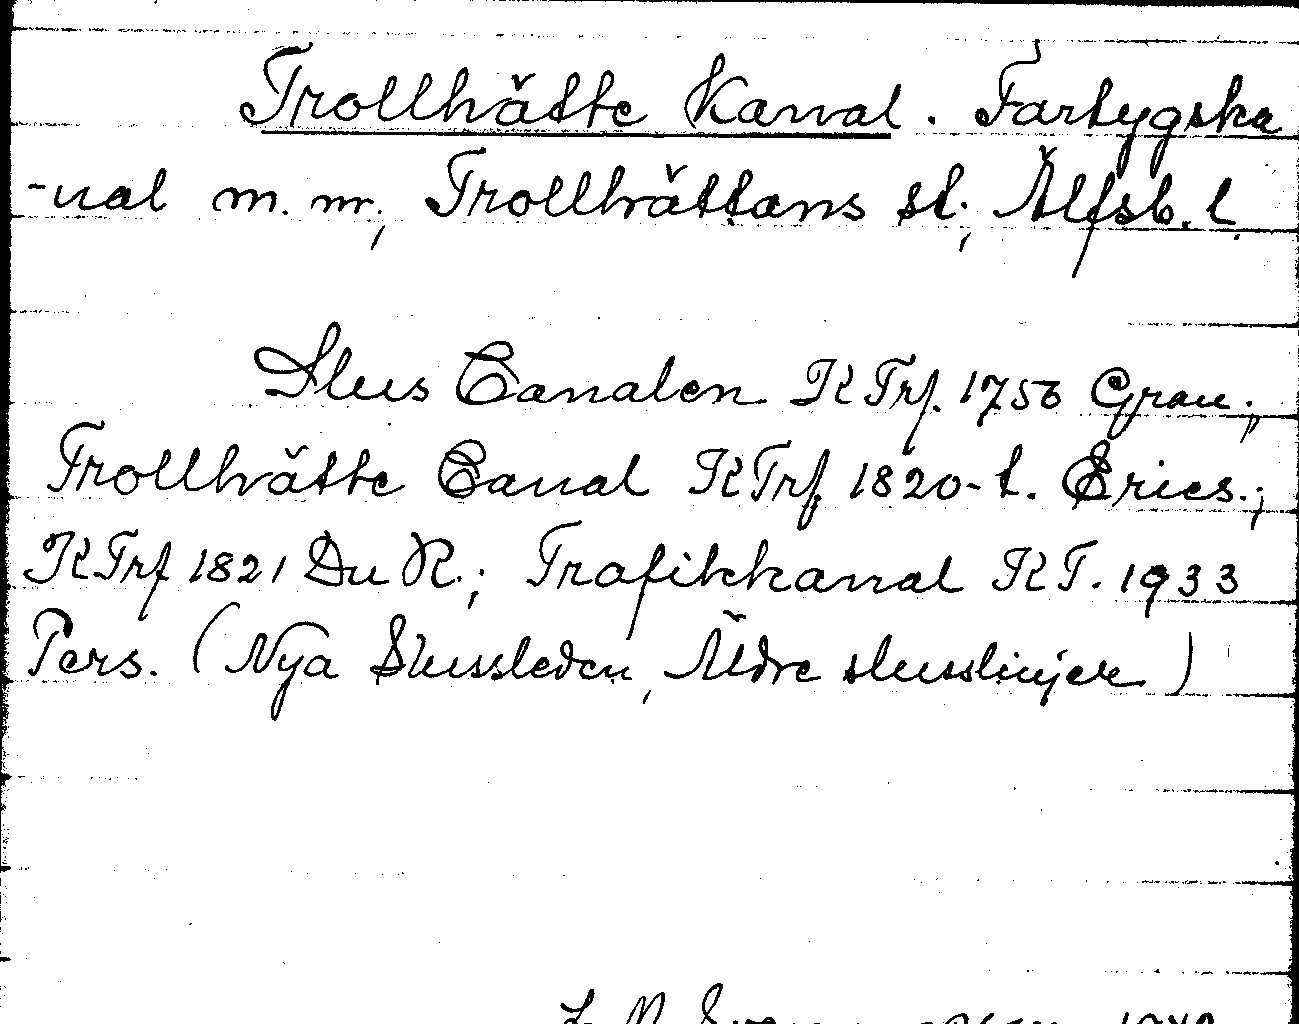 Trollhätte Kanal. Fartygska
-nal m. m., Trollhättans st., Älfsb. l.
Slus Canalen KTrf. 1756 Grau.;
Trollhätte Canal KTrf 1820-t. Erics.;
KTrf 1821 Du R.; Trafikkanal KT. 1933
Pers. (Nya Slussleden, Äldre slusslinjer)